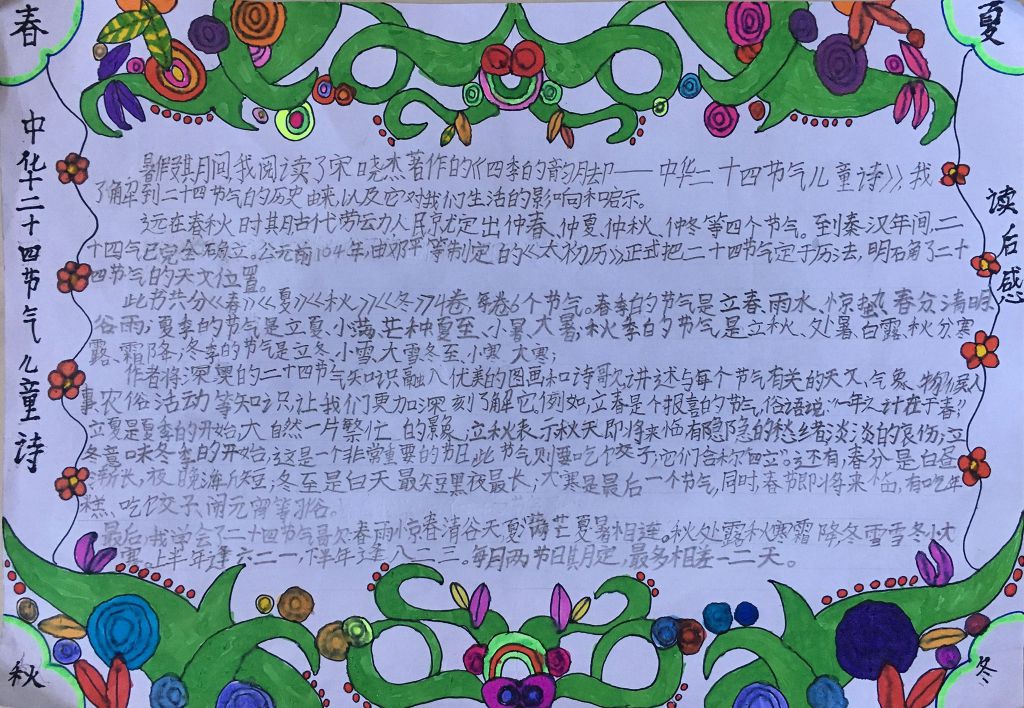 春
夏
中华二十四节气儿童诗
读后感
暑假期间,我阅读了宋晓杰著作的《四季的韵脚——中华二十四节气儿童诗》,我
了解到二十四节气的历史由来,以及它对我们生活的影响和启示。
远在春秋时期古代劳动人民就定出仲春、仲夏、仲秋、仲冬等四个节气。到秦汉年间,二
十四气已完全确立。公元前104年,由邓平等制定的《太初历》正式把二十四节气定于历法,明确了二十
四节气的天文位置。
此书共分《春》《夏》《秋》《冬》4卷,每卷6个节气。春季的节气是立春、雨水、惊蛰、春分、清明、
谷雨;夏季的节气是立夏、小满、芒种、夏至、小暑、大暑;秋季的节气是立秋、处暑、白露、秋分、寒
露、霜降;冬季的节气是立冬、小雪、大雪、冬至、小寒、大寒;
作者将深奥的二十四节气知识融入优美的图画和诗歌,讲述与每个节气有关的天文、气象、物候、人
事、农俗活动等知识,让我们更加深刻了解它,例如,立春是个报喜的节气,俗语说:“一年之计在于春”;
立夏是夏季的开始,大自然一片繁忙的景象,立秋表示秋天即将来临,有隐隐的愁绪淡淡的哀伤;立
冬意味冬至的开始,这是一个非常重要的节日,此节气则要吃饺子,它们合称“四立”。还有,春分是白昼
渐长,夜晚渐短,冬至是白天最短黑夜最长;大寒是最后一个节气,同时,春节即将来临,有吃年
糕、吃饺子、闹元宵等习俗。
最后,我学会了二十四节气歌:春雨惊春清谷天,夏满芒夏暑相连。秋处露秋寒霜降,冬雪雪冬小大
寒。上半年逢六二一,下半年逢八二三。每月两节日期定,最多相差一二天。
秋
冬